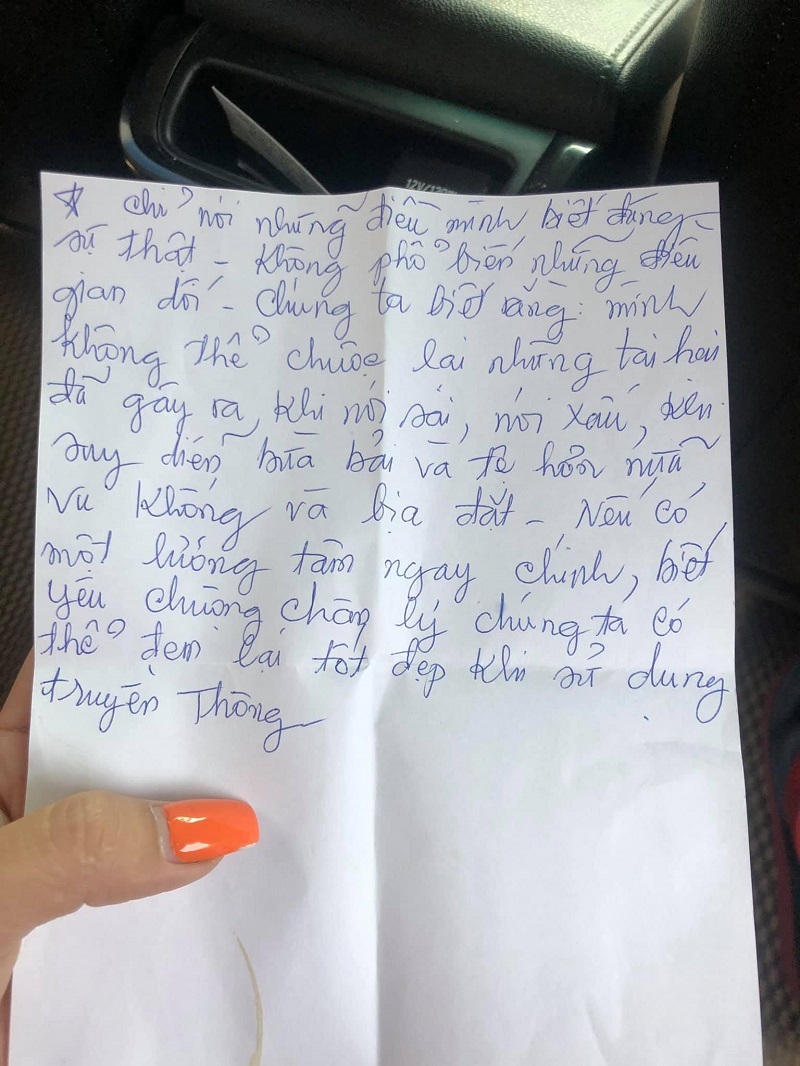 12V/120W
* chỉ nói những điều mình biết đúng
sự thật - không phổ biến những điều
gian dối - chúng ta biết rằng: mình
không thể chuộc lại những tai hại
đã gây ra, khi nói sai, nói xấu,
suy diễn bừa bãi và tệ hơn nữa
vu khống và bịa đặt - Nếu có
một lương tâm ngay chính, biết
yêu chuộng chân lý chúng ta có
thể đem lại tốt đẹp khi sử dụng
truyền thông